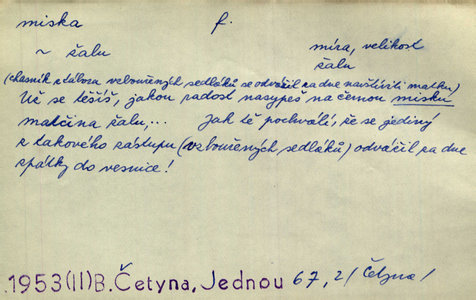 miska f.
~ žalu míra, velikost
žalu
(chasník z tábora vzbouřených sedláků se odvážil za dne navštíviti matku)
Už se těšíš, jakou radost nasypeš na černou misku
matčina žalu,... Jak tě pochválí, že se jediný
z takového zástupu (vzbouřených sedláků) odvážil za dne
zpátky do vesnice!
1953(II)B. Četyna, Jednou 67, 2/ Četyna/